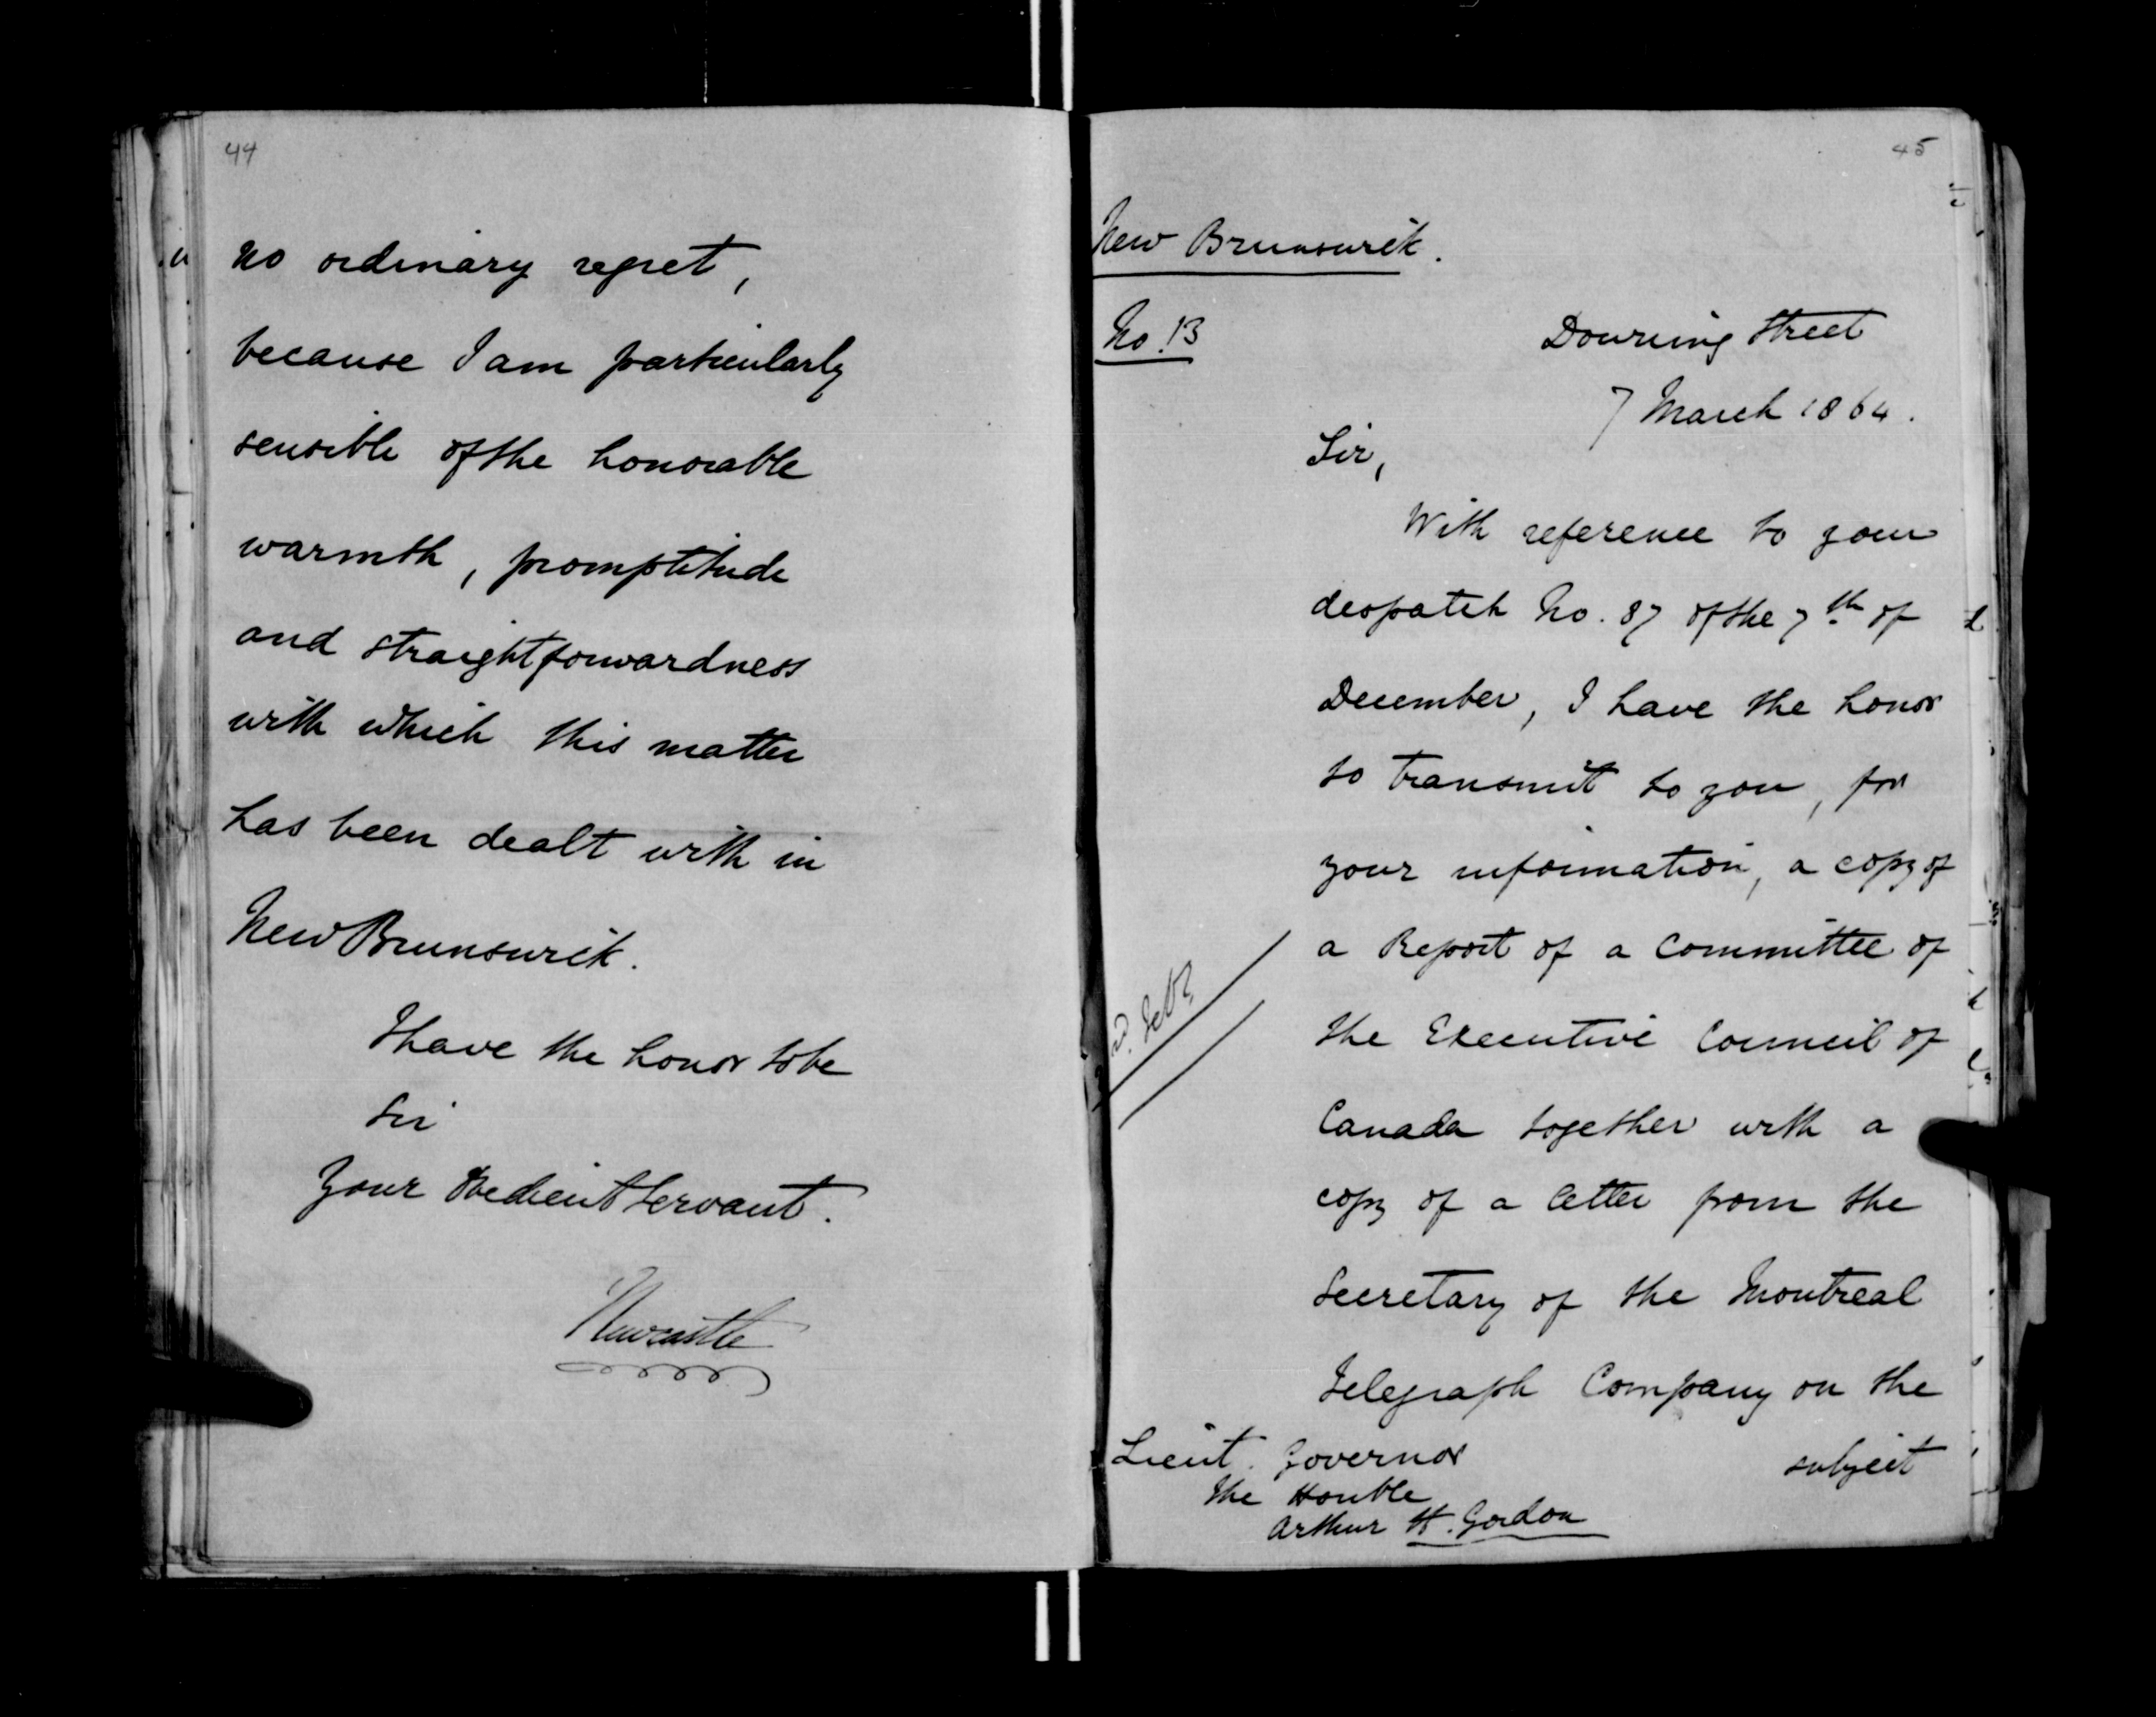 44
no ordinary regret,
because I am particularly
sensible of the honorable
warmth, promptitude
and straightforwardness
with which this matter
has been dealt with in
New Brunswick.
I have the honor to be
Sir
Your Obedient Servant.
Newcastle
45
New Brunswick.
No. 13
Downing Street
7 March 1864.
Sir,
With reference to your
despatch No. 87 of the 7th of
December, I have the honor
to transmit to you, for
your information, a copy of
a Report of a Committee of
the Executive Council of
Canada together with a
copy of a letter from the
Secretary of the Montreal
Telegraph Company on the
subject
Lieut. Governor
The Honble
Arthur H. Gordon